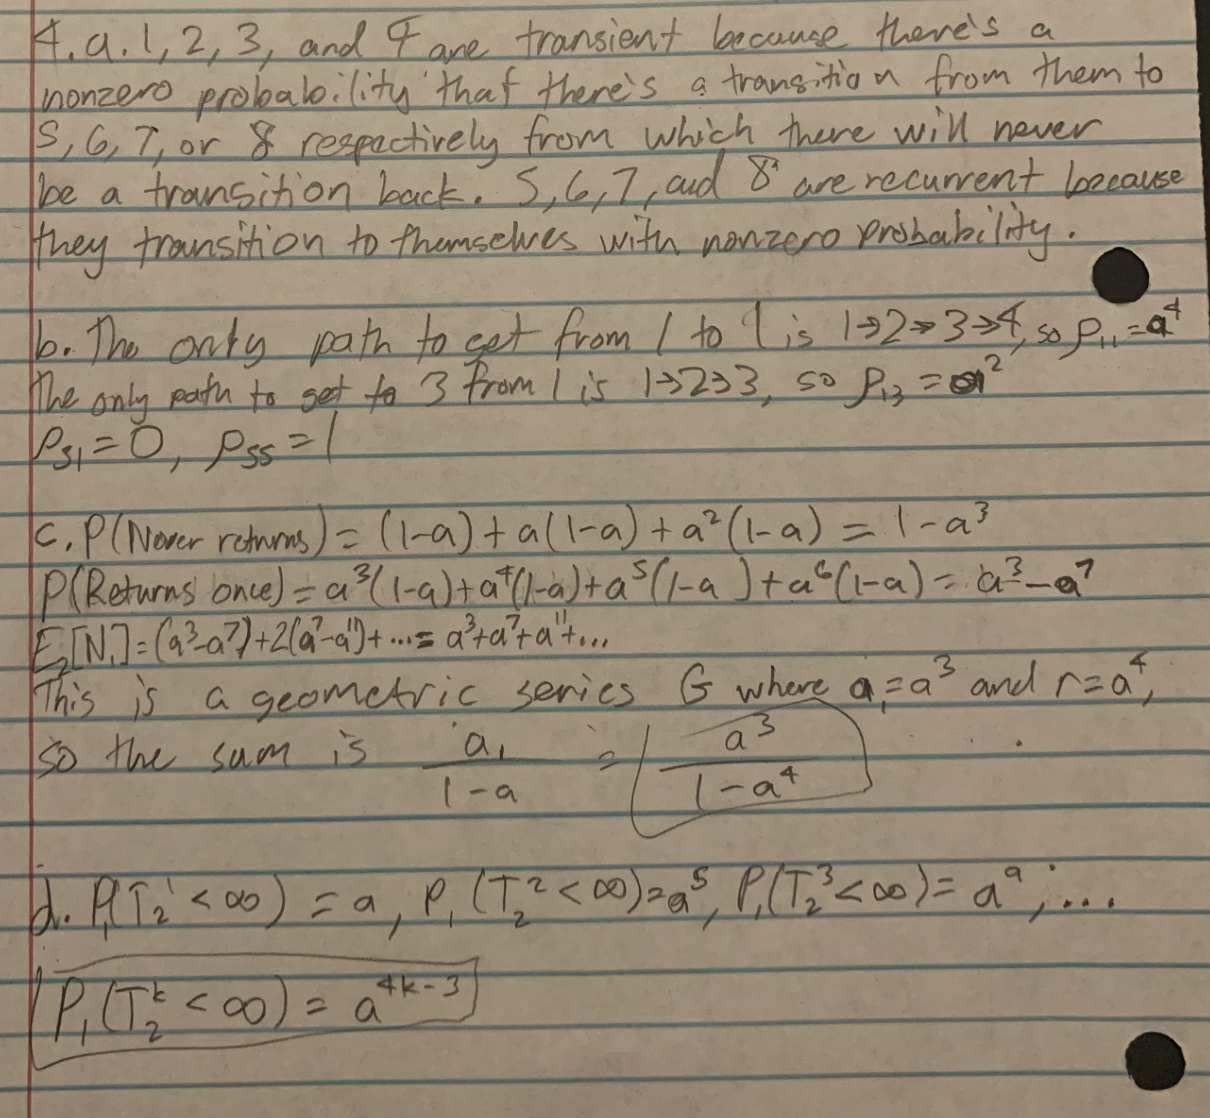 4. a. 1, 2, 3, and 4 are transient because there's a
nonzero probability that there's a transition from them to
5, 6, 7, or 8 respectively from which there will never
be a transition back. 5, 6, 7, and 8 are recurrent because
they transition to themselves with nonzero probability.
b. The only path to get from 1 to 1 is 1→2→3→4, so ρ₁₁ = a⁴
The only path to get to 3 from 1 is 1→2→3, so ρ₁₃ = a²
ρ₅₁ = 0, ρ₅₅ = 1
c. P(Never returns) = (1-a) + a(1-a) + a²(1-a) = 1-a³
P(Returns once) = a³(1-a) + a⁴(1-a) + a⁵(1-a) + a⁶(1-a) = a³-a⁷
E₂[N₁] = (a³-a⁷) + 2(a⁷-a¹¹) + ... = a³+a⁷+a¹¹+...
This is a geometric series G where a₁ = a³ and r = a⁴,
so the sum is a₁/(1-a) = a³/(1-a⁴)
d. P₁(T₂¹ < ∞) = a, P₁(T₂² < ∞) = a⁵, P₁(T₂³ < ∞) = a⁹, ...
P₁(T₂ᵏ < ∞) = a⁴ᵏ⁻³